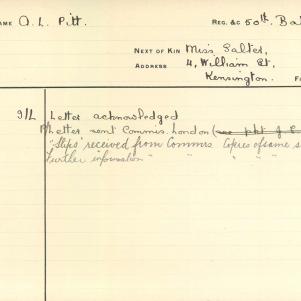 NAME A. L. Pitt. REG. &C 50th. Bat
NEXT OF KIN Miss Salter,
ADDRESS 4, William St,
Kensington.
9/L Letter acknowledged
Letter sent Commrs. London (see pht of
"Slips" received from Commrs Copies of same s
further information " " " "